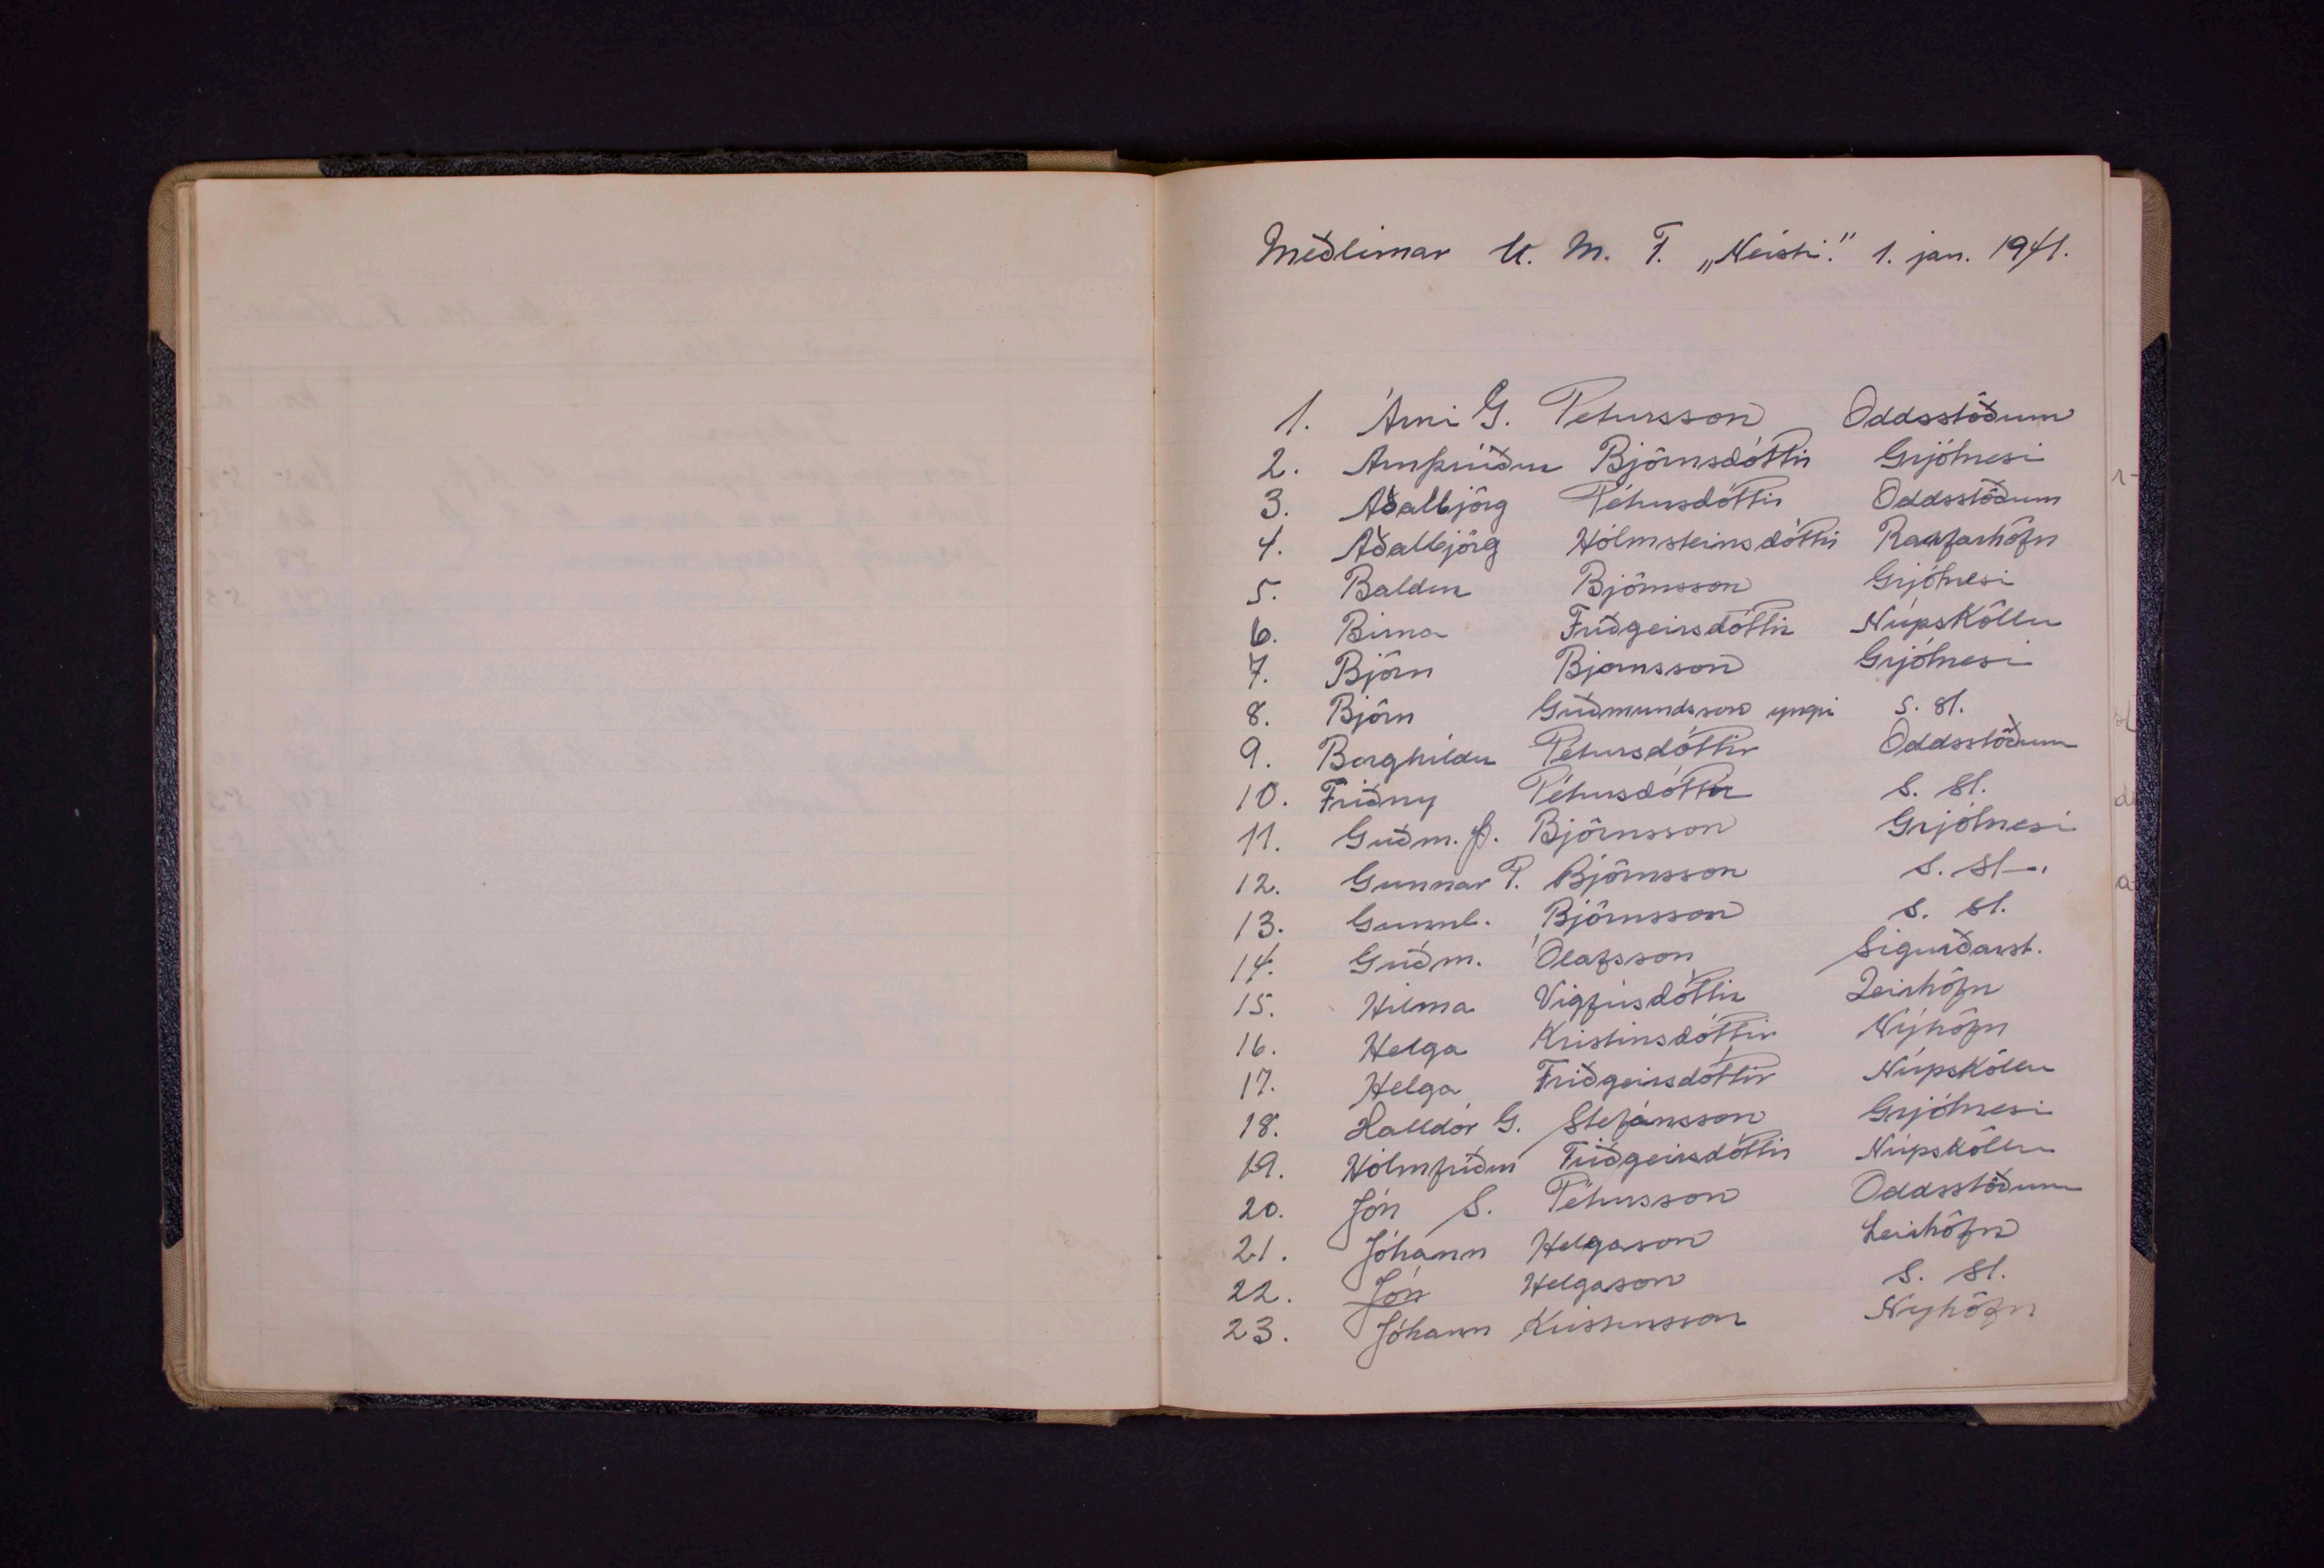 Meðlimar U. M. F. „Neisti." 1. jan. 1941.
1. Árni G. Pétursson Oddsstöðum
2. Arnþrúður Björnsdóttir Grjótnesi
3. Aðalbjörg Pétursdóttir Oddsstöðum
4. Aðalbjörg Hólmsteinsdóttir Raufarhöfn
5. Baldur Björnsson Grjótnesi
6. Birna Friðgeirsdóttir Núpskötlu
7. Björn Björnsson Grjótnesi
8. Björn Guðmundsson yngri s. st.
9. Borghildur Pétursdóttir Oddsstöðum
10. Friðný Pétursdóttir s. st.
11. Guðm. Þ. Björnsson Grjótnesi
12. Gunnar P. Björnsson s. st.
13. Gunnl. Björnsson s. st.
14. Guðm. Ólafsson Sigurðarst.
15. Hilma Vigfúsdóttir Leirhöfn
16. Helga Kristinsdóttir Nýhöfn
17. Helga Friðgeirsdóttir Núpskötlu
18. Halldór G. Stefánsson Grjótnesi
19. Hólmfríður Friðgeirsdóttir Núpskötlu
20. Jón S. Pétursson Oddsstöðum
21. Jóhann Helgason Leirhöfn
22. Jón Helgason s. st.
23. Jóhann Kristinsson Nýhöfn